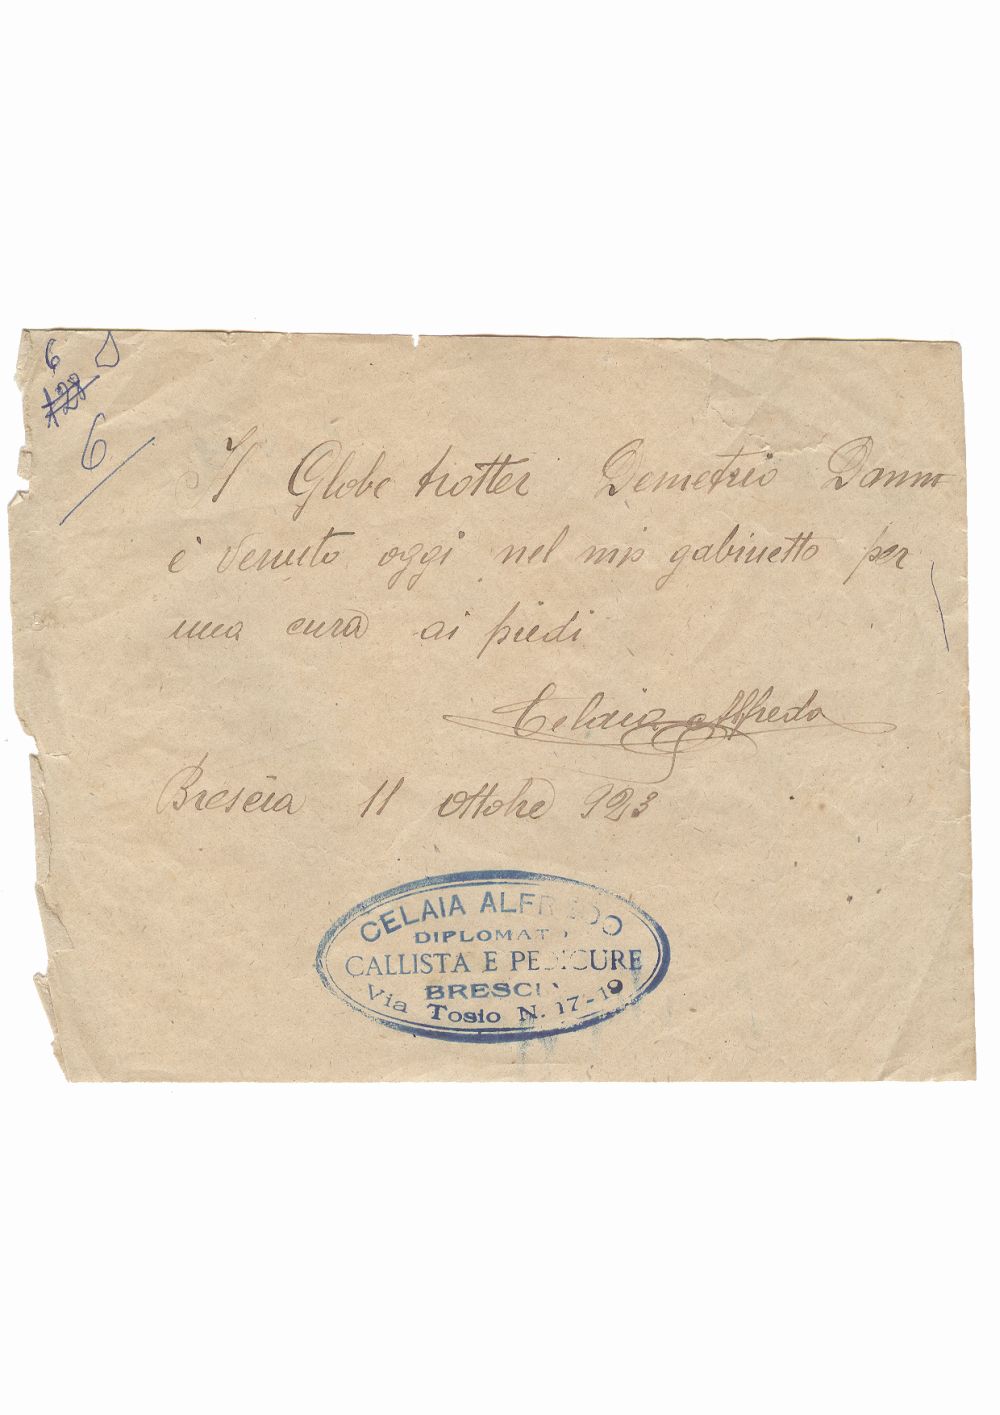 6
128
6
Il Globe trotter Demetrio Dann
è venuto oggi nel mio gabinetto per
una cura ai piedi
Celaia Alfredo
Brescia 11 ottobre 923
CELAIA ALFREDO
DIPLOMATO
CALLISTA E PEDICURE
BRESCIA
Via Tosio N. 17-19